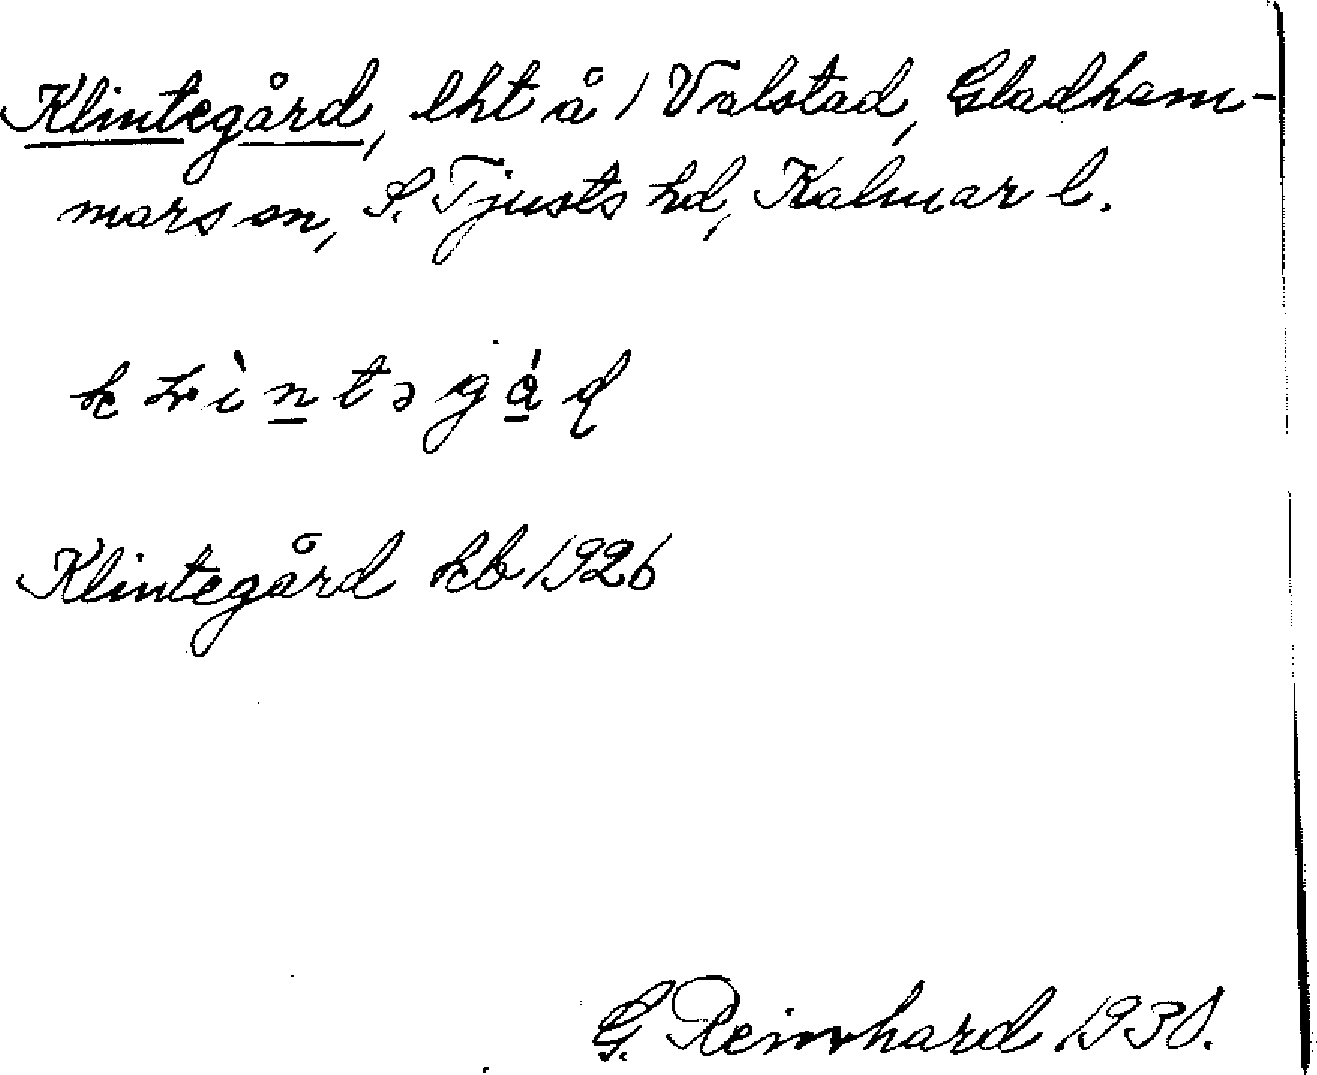 Klintegård, lht å 1 Valstad, Gladham-
mars sn, S. Tjusts hd, Kalmar l.
Klintegård kb 1926
G. Reinhard